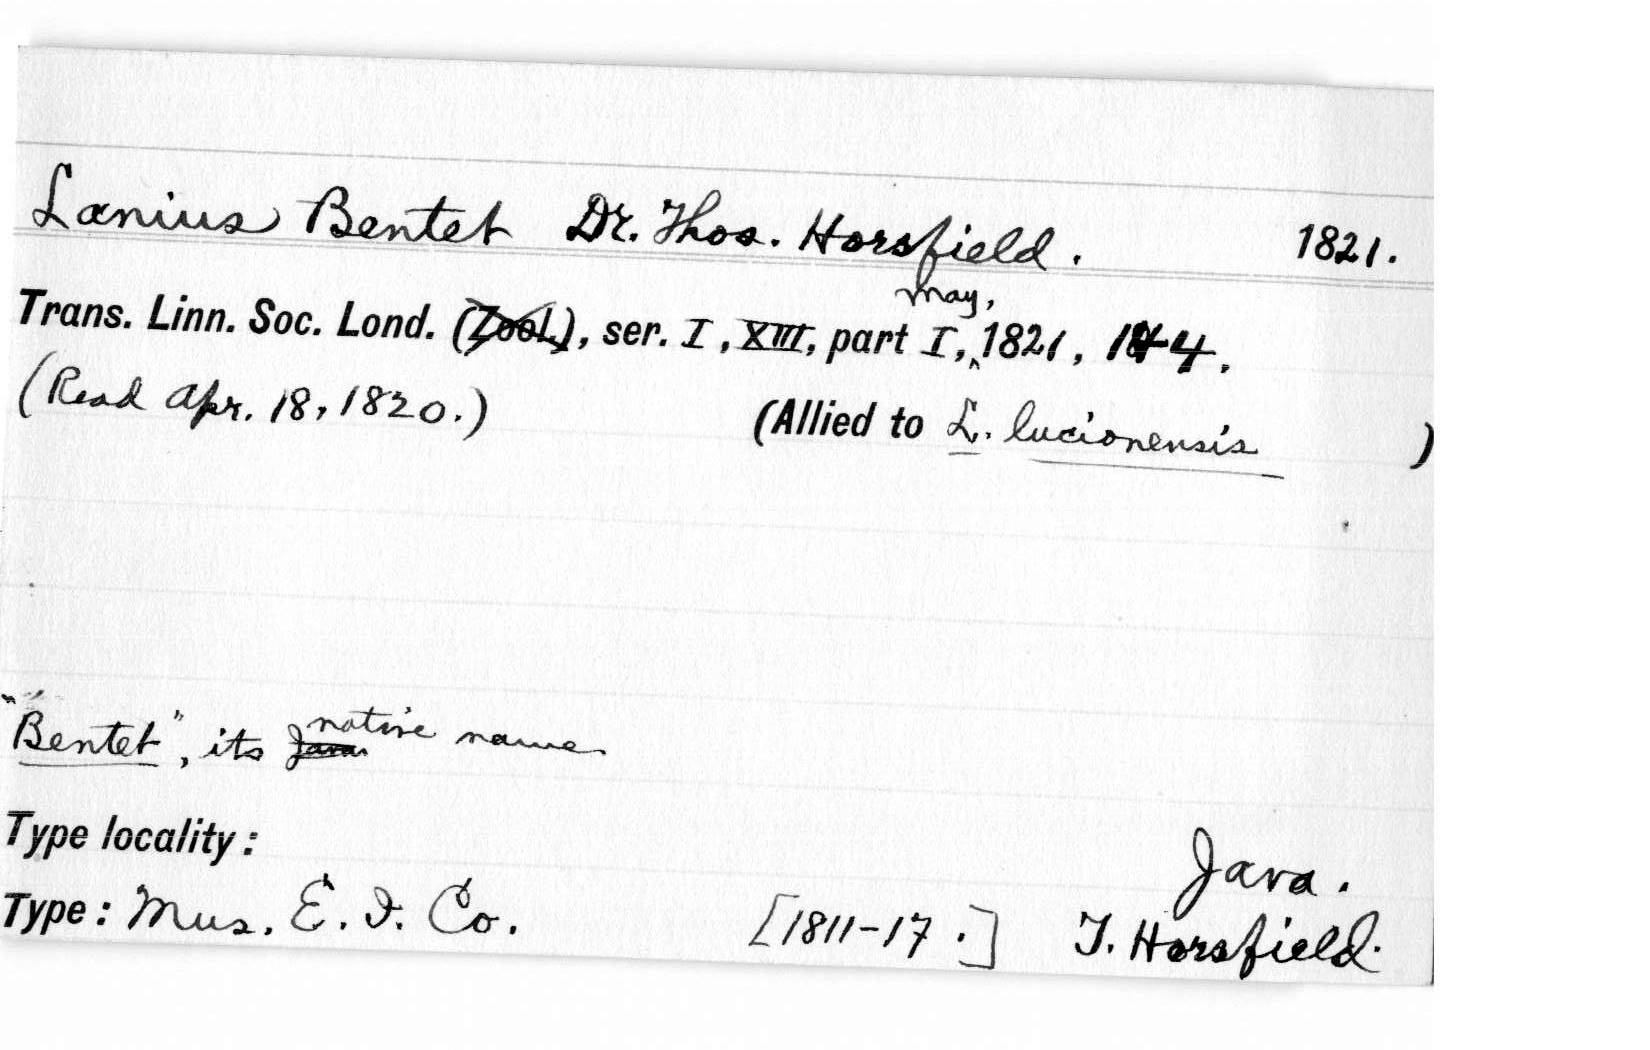 Lanius Bentet Dr. Thos. Horsfield. 1821.
May,
Trans. Linn. Soc. Lond. (Zool.), ser. I, XIII, part I, ^ 1821, 144.
(Read Apr. 18, 1820.) (Allied to L. lucionensis )
"Bentet", its Java native name
Type locality: Java.
Type: Mus. E. I. Co. [1811-17.] T. Horsfield.